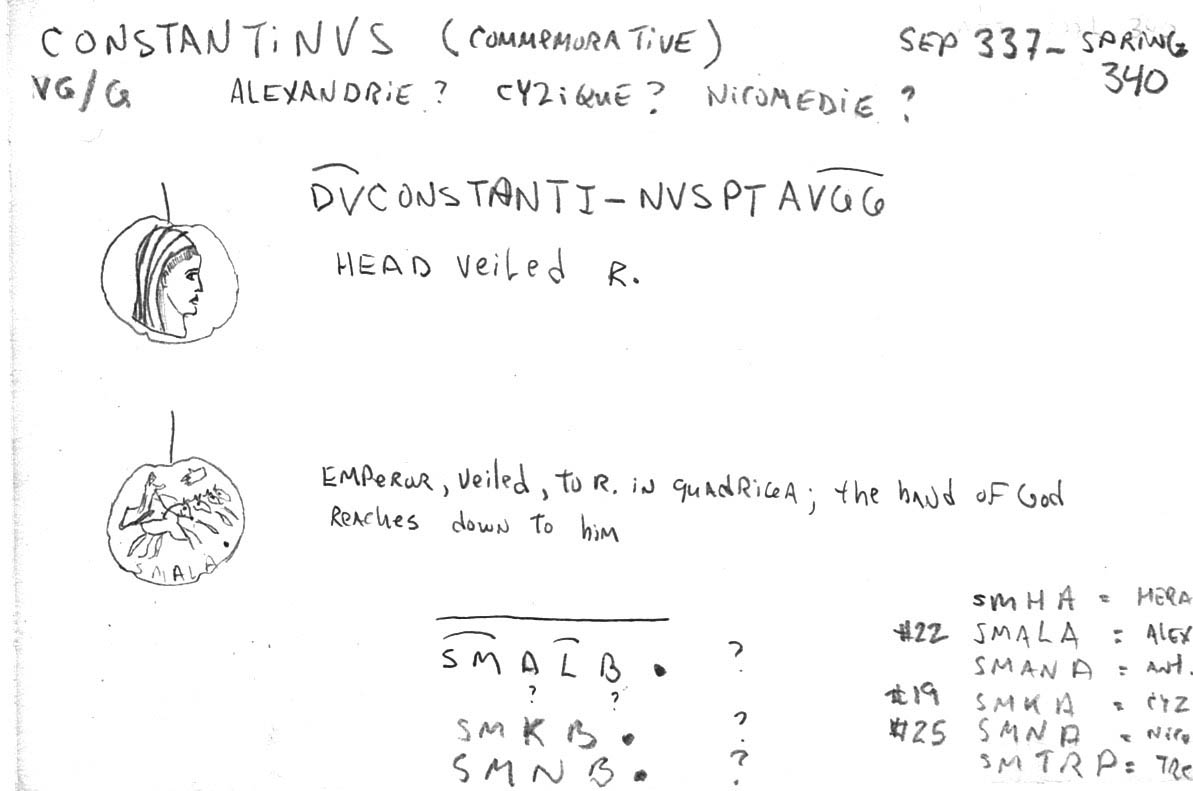 CONSTANTINVS (COMMEMORATIVE) SEP 337- SPRING
340
VG/G ALEXANDRIE ? CYZIQUE ? NICOMEDIE ?
DVCONSTANTI-NVSPTAVGG
HEAD veiled R.
EMPEROR, veiled, to R. in quadriga; the hand of God
Reaches down to him
SMALA.
SMALB. ?
? ?
SMKB. ?
SMNB. ?
SMHA = HERA
#22 SMALA = ALEX
SMANA = ANT.
#19 SMKA = CYZ
#25 SMNA = NICO
SMTRP = TRE